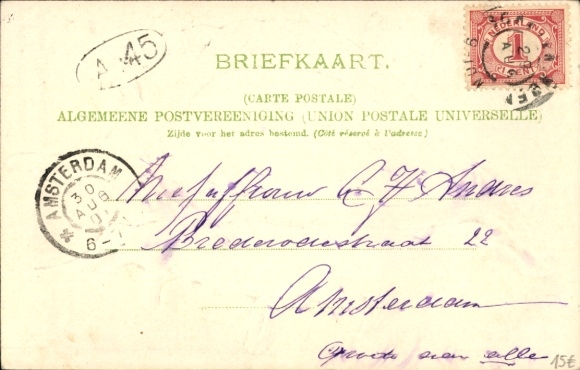 A 45
BRIEFKAART.
(CARTE POSTALE)
ALGEMEENE POSTVEREENIGING (UNION POSTALE UNIVERSELLE)
Zijde voor het adres bestemd. (Côté réservé à l'adresse)
NEDERLAND
1
CENT
AMSTERDAM
30
AUG
6-7
Mejuffrouw C H Andres
Brederodestraat 22
Amsterdam
Groete aan alle
15€